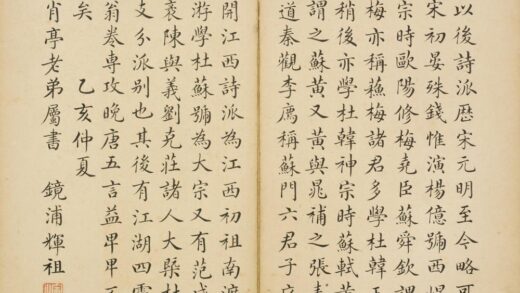 以後詩派歷宋元明至今略可
宋初晏殊錢惟演楊億號西崑
宗時歐陽修梅堯臣蘇舜欽謂
梅亦稱蘓梅諸君多學杜韓王
稍後亦學杜韓神宗時蘇軾黃
謂之蘇黃又黃與晁補之張耒
道秦觀李廌稱蘇門六君子
開江西詩派為江西初祖南渡
游學杜蘇號為大宗又有范成
袤陳與義劉克莊諸人大槩杜
支分派別也其後有江湖四靈
翁卷專攻晚唐五言益卑卑
矣 乙亥仲夏
肖亭老弟屬書 鏡浦輝祖